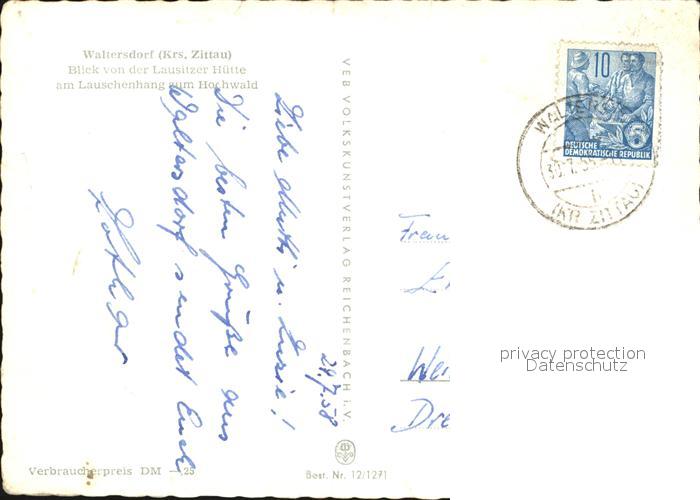 Waltersdorf (Krs. Zittau)
Blick von der Lausitzer Hütte
am Lauschenhang zum Hochwald
29.7.58
Liebe Mutti u.
Die besten Grüße aus
Waltersdorf sendet Euch
Lothar
VEB VOLKSKUNSTVERLAG REICHENBACH i. V.
10
DEUTSCHE
DEMOKRATISCHE REPUBLIK
(KR ZITTAU)
Frau
privacy protection
Datenschutz
Dre
Verbraucherpreis DM —,25
Best. Nr. 12/1271